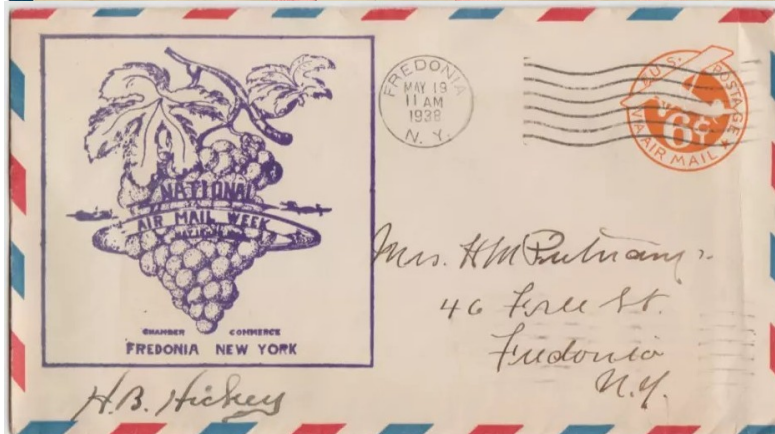 NATIONAL
AIR MAIL WEEK
CHAMBER COMMERCE
FREDONIA NEW YORK
FREDONIA
MAY 19
11 AM
1938
N. Y.
U.S. POSTAGE
6¢
VIA AIR MAIL
Mrs. H M Putnam
46 St.
Fredonia
N.Y.
H.B. Hickey